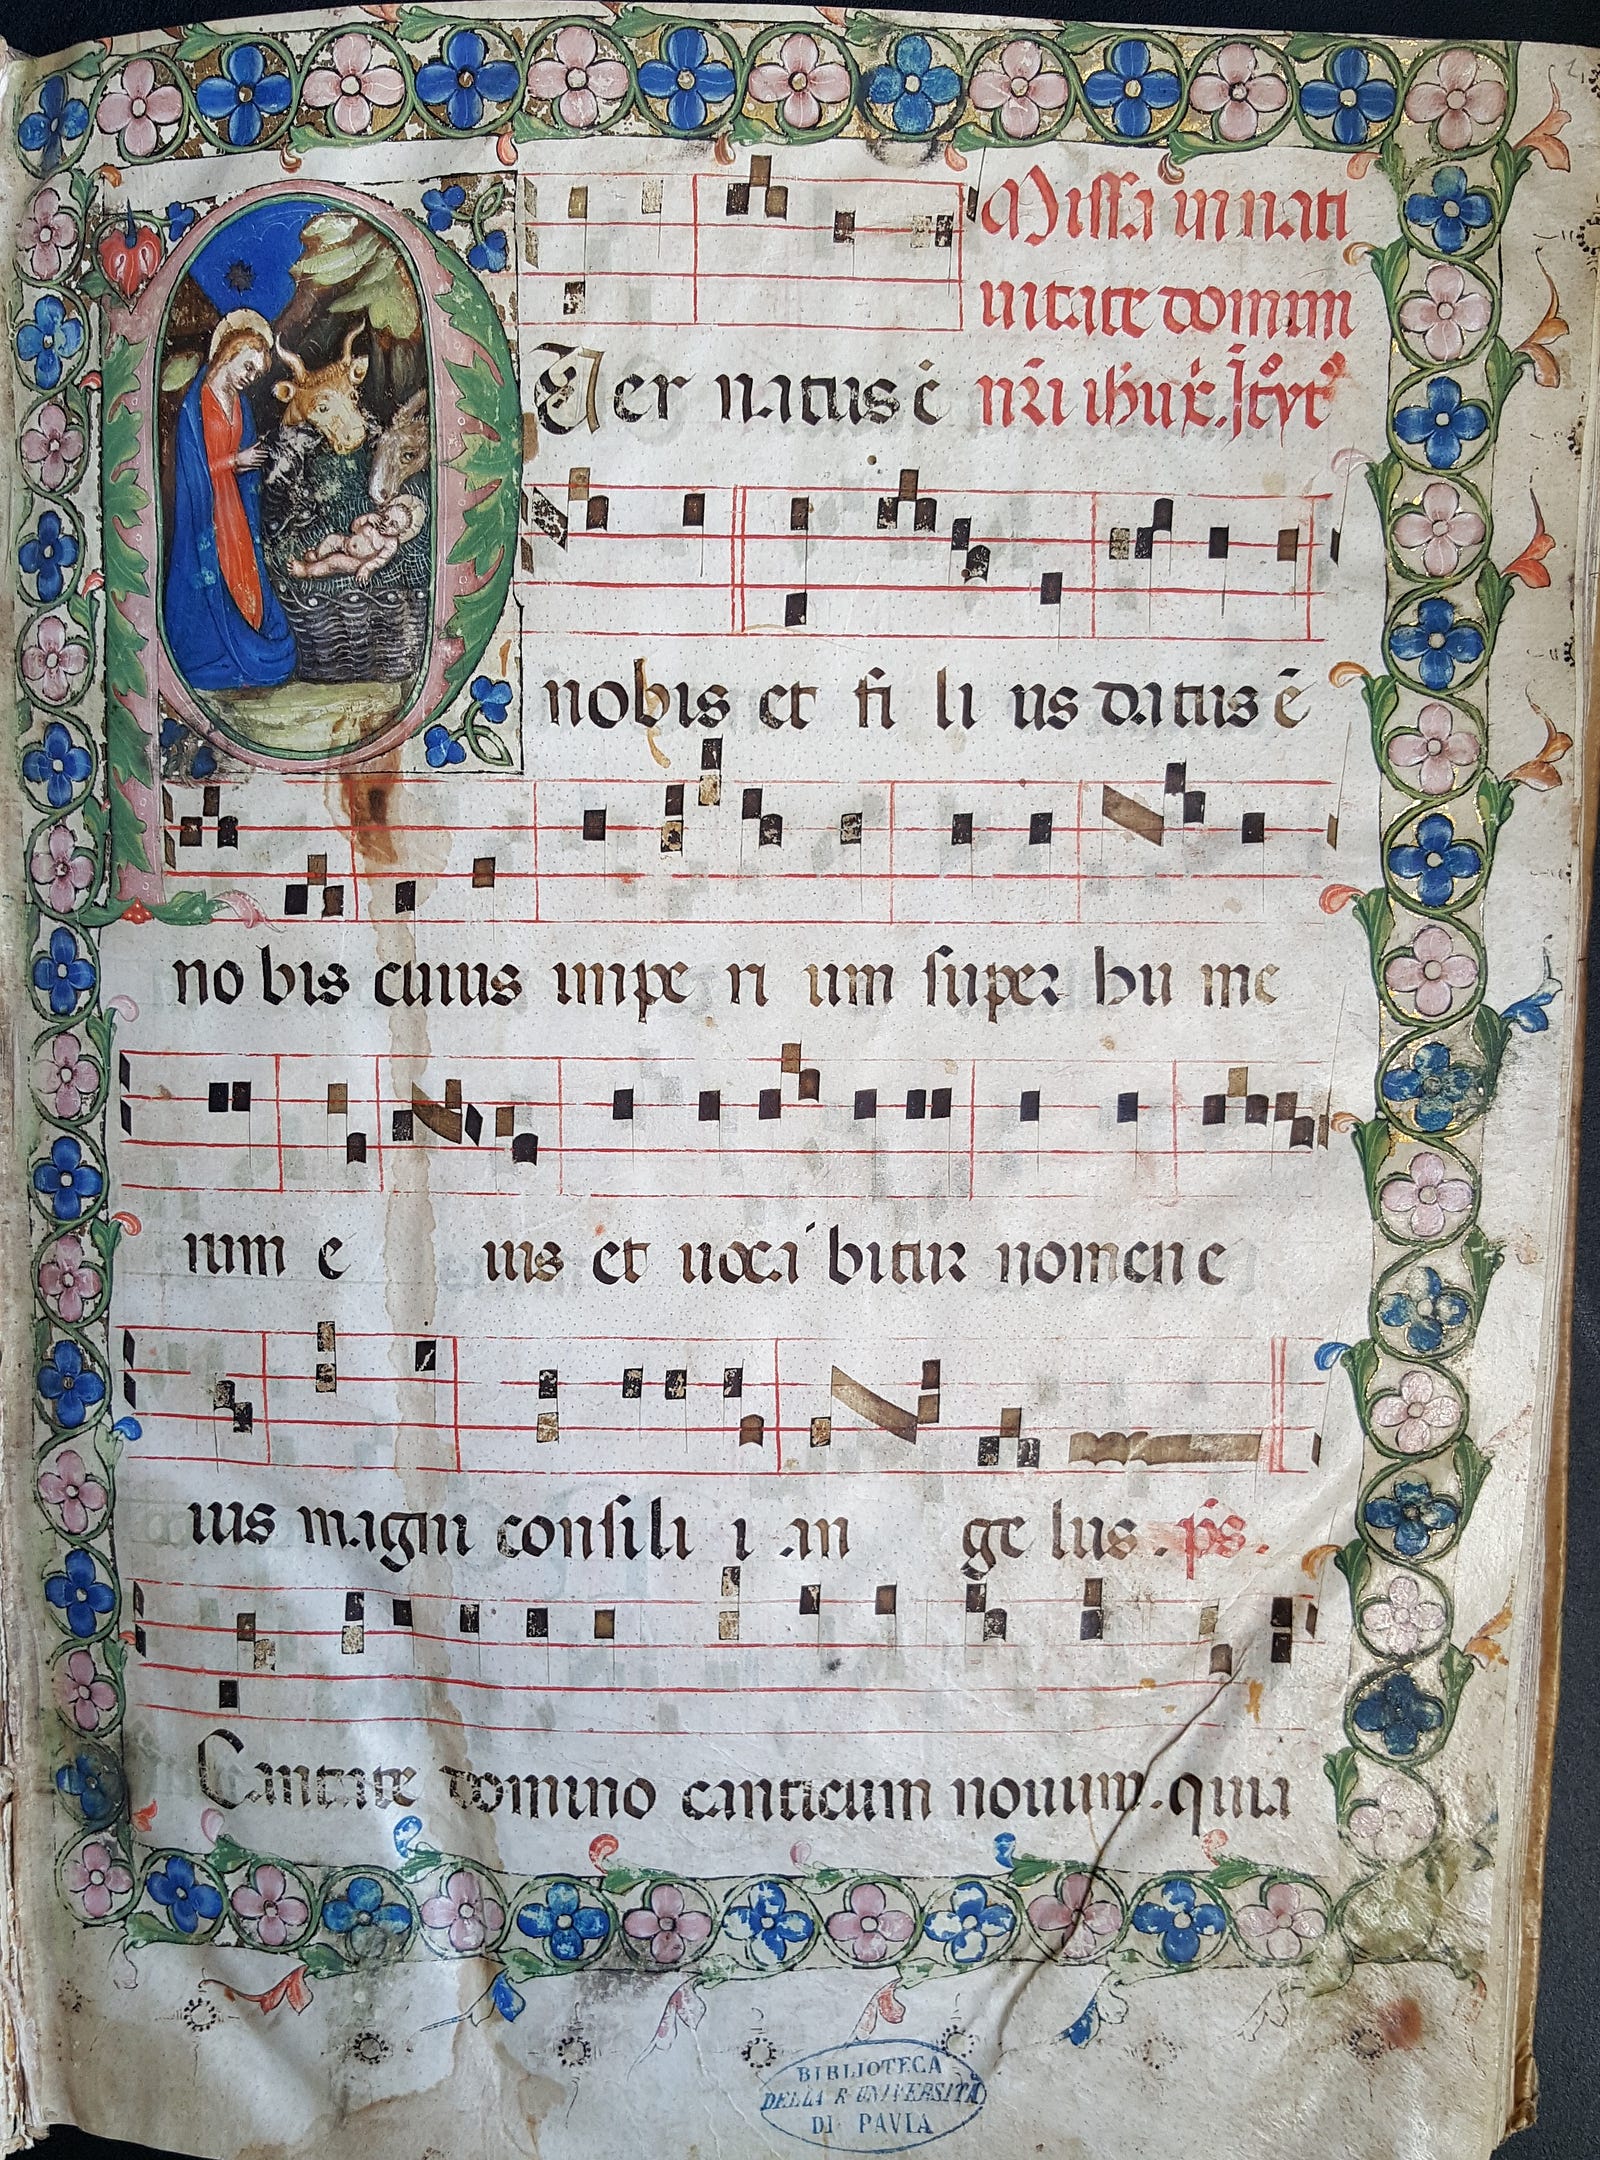 Missa in nati
uitate domini
PUer natus ē nr̄i ihu xp̄i. Itroit⁹
nobis et fi li us datus ē
no bis cuius impe ri um super hu me
rum e ius et uoca bitur nomen e
ius magni consili i an ge lus . ps̄.
Cantate domino canticum nouum. quia
BIBLIOTECA
DELLA R. UNIVERSITÀ
DI PAVIA